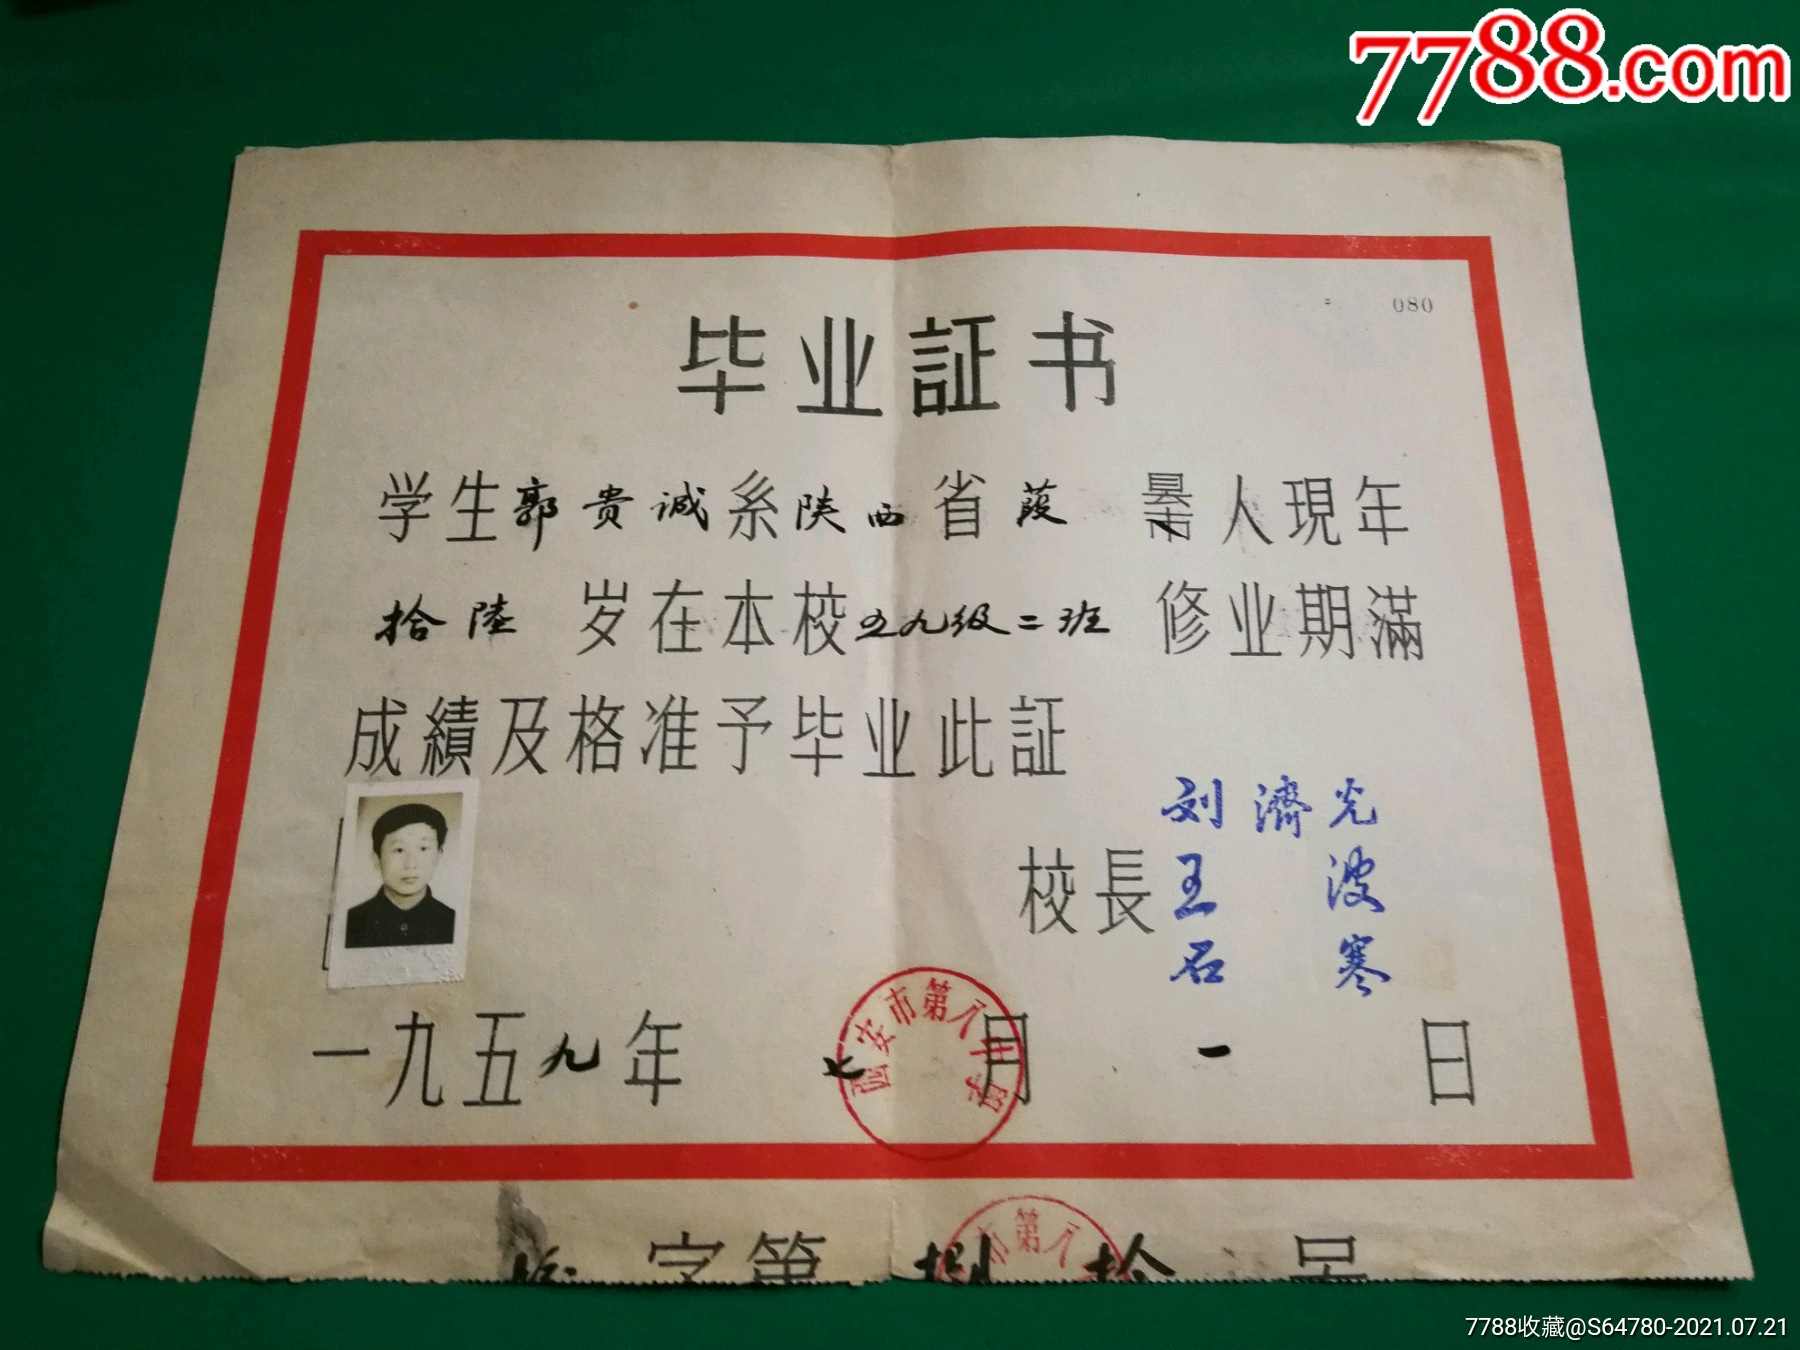 7788.com
080
毕业証书
学生郭贵诚系陕西省葭县市人現年
拾陸岁在本校五九级二班修业期滿
成績及格准予毕业此証
刘濟光
校長王波
石寒
一九五九年七月一日
西安市第八中学
字第捌拾号
市第八
7788收藏@S64780-2021.07.21